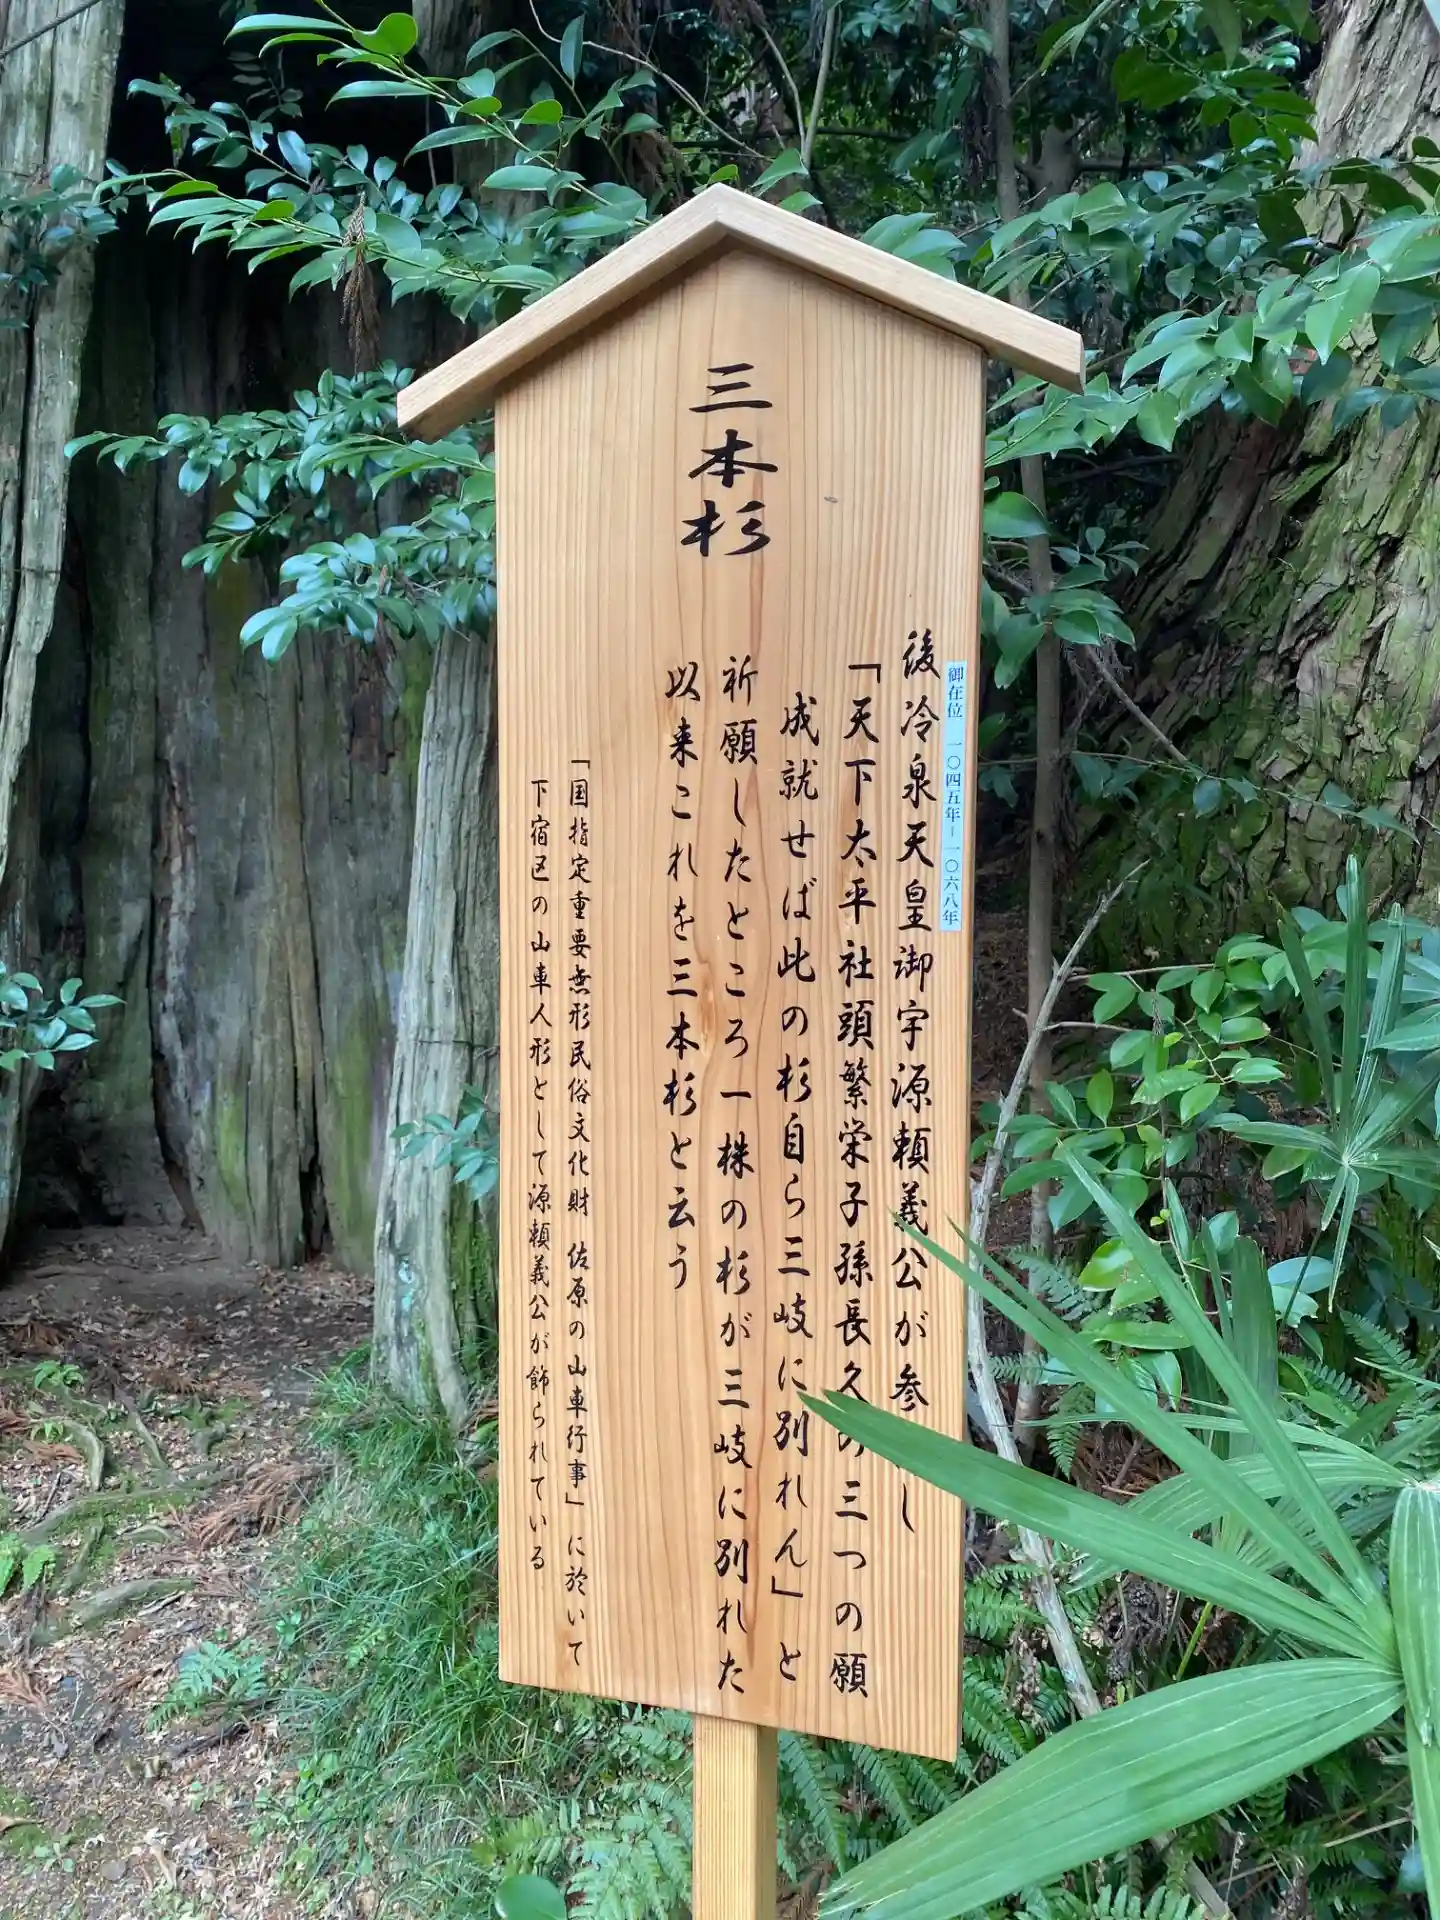 三本杉
御在位 一〇四五年−一〇六八年
後冷泉天皇御宇源頼義公が参し
「天下太平社頭繁栄子孫長久の三つの願
成就せば此の杉自ら三岐に別れん」と
祈願したところ一株の杉が三岐に別れた
以来これを三本杉と云う
「国指定重要無形民俗文化財 佐原の山車行事」に於いて
下宿区の山車人形として源頼義公が飾られている